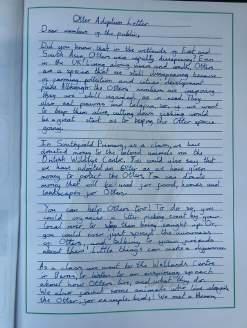 Otter Adoption Letter
Dear members of the public,
Did you know that in the wetlands of East and
South Asia, Otters are rapidly disappearing? Even
in the UK! Living along rivers and wetlands, Otters
are a species that are still disappearing because
of farming, pollution and urban development
Although the Otters numbers are improving
they are still in need. They
also eat prawns and So, if we want
to keep them alive, cutting down fishing would
be a great start as to keeping the Otter species
going.
In Primary, as a class, we have
donated money to the beloved animals in the
British Wildlife Centre. You could also say that
we have adopted an Otter as we have given
money to protect the Otters. You can donate
money that will be used for food, homes and
for Otters.
You can help Otters too! To do so, you
could organise a litter picking event by your
local river to stop them being caught up. Or,
you could even just spread the awareness
of Otters, and talking to your friends
about them! Little things can make a difference.
As a class, we went to the Wetlands Centre
in Barnes, to listen to an
about how Otters live, and what they do.
We also some animals who live alongside
the Otter, for example, birds! We met a